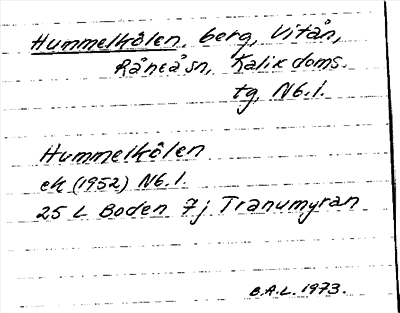 Hummelkölen, berg, Vitån,
Råneå sn, Kalix doms.
tg, Nb. l.
Hummelkölen
ek (1952) Nb. l.
25 L Boden 7j Tranumyran
E.A.L. 1973.